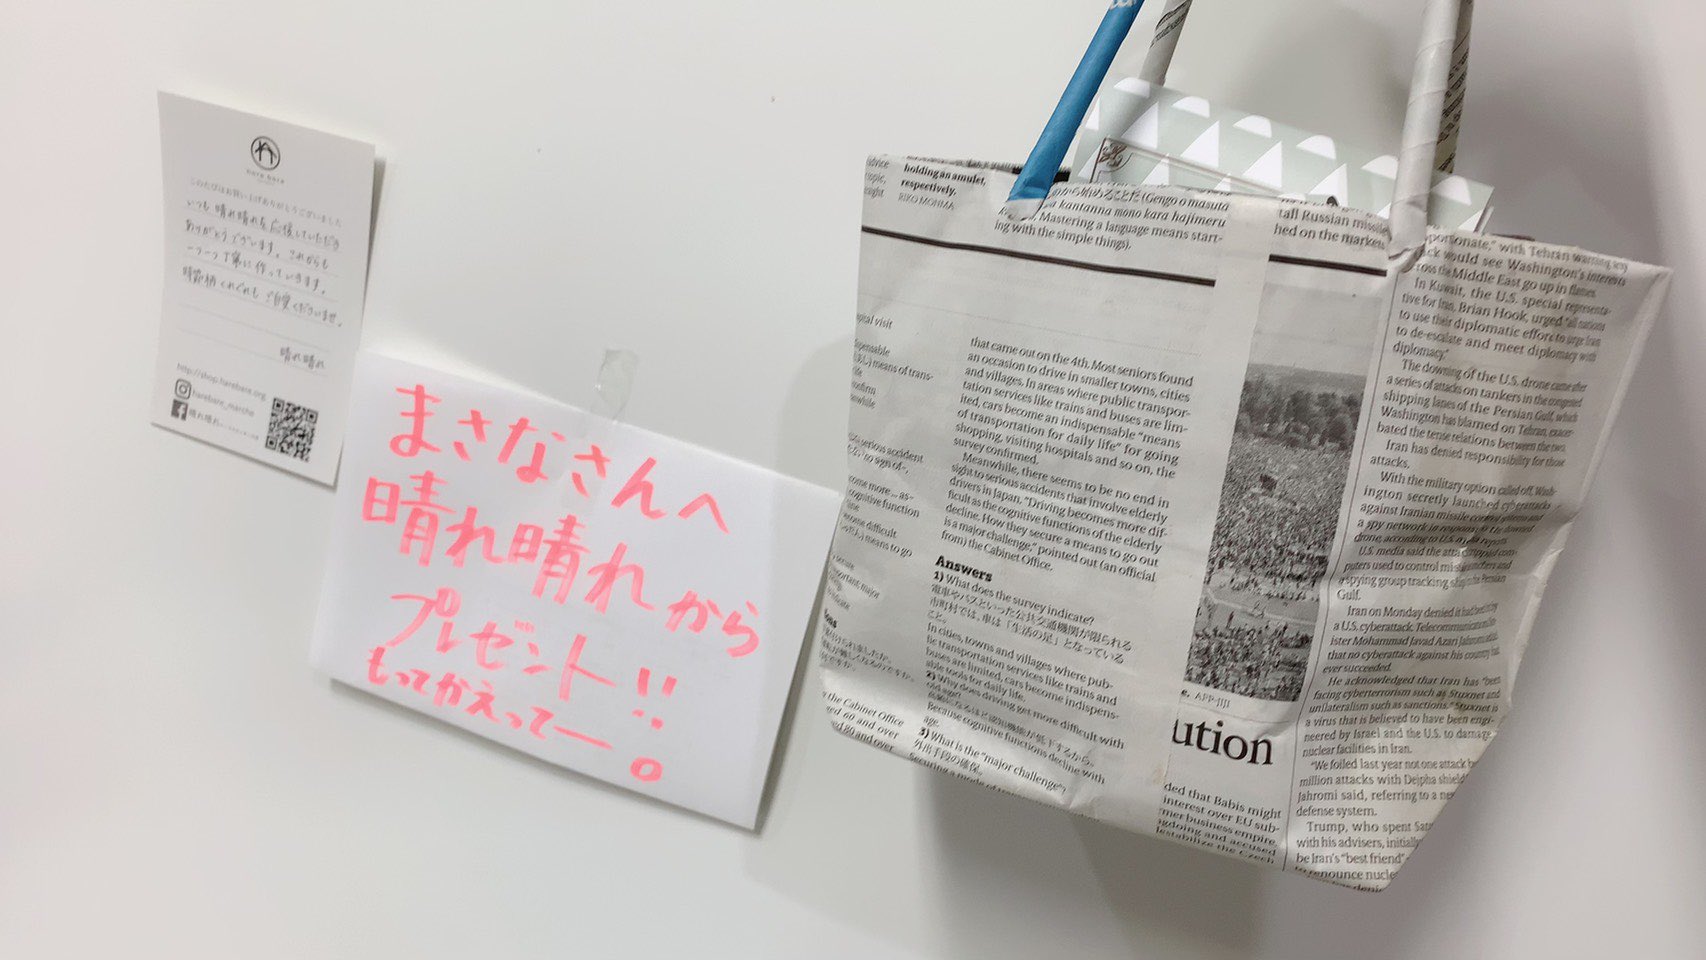 hare hare
このたびはお買い上げありがとうございました
いつも晴れ晴れを応援していただき
ありがとうございます。これからも
一つ一つ丁寧に作っていきます。
時節柄くれぐれもご自愛くださいませ。
晴れ晴れ
http://shop.harebare.org
harebare_marche
晴れ晴れ
まさなさんへ
晴れ晴れから
プレゼント!!
もってかえってー。
holding an amulet,
respectively.
RIKO MOHMA
から始めることだ (Gengo o masuta
kantanna mono kara hajimeru
Mastering a language means start-
ing with the simple things).
tall Russian missile
hed on the market
pital visit
means of trans-
serious accident
sign of
come more ... as-
cognitive function
difficult
means to go
important, major
the Cabinet Office
60 and over
80 and over
that came out on the 4th. Most seniors found
an occasion to drive in smaller towns, cities
and villages. In areas where public transpor-
tation services like trains and buses are lim-
ited, cars become an indispensable "means
of transportation for daily life" for going
shopping, visiting hospitals and so on, the
survey confirmed.
Meanwhile, there seems to be no end in
sight to serious accidents that involve elderly
drivers in Japan. "Driving becomes more dif-
ficult as the cognitive functions of the elderly
decline. How they secure a means to go out
is a major challenge," pointed out (an official
from) the Cabinet Office.
Answers
1) What does the survey indicate?
電車やバスといった公共交通機関が限られる
市町村では、車は「生活の足」となっている
こと。
In cities, towns and villages where pub-
lic transportation services like trains and
buses are limited, cars become indispens-
able tools for daily life.
2) Why does driving get more difficult with
old age?
高齢になるほど認知機能が低下するから。
Because cognitive functions decline with
age.
3) What is the "major challenge"?
外出手段の確保。
Securing a mode of
e. AFP-JIJI
ution
ded that Babis might
interest over EU sub-
mer business empire,
gdoing and accused
destabilize the Czech
portionate," with Tehran warning
would see Washington's interests
across the Middle East go up in flames.
In Kuwait, the U.S. special representa-
tive for Iran, Brian Hook, urged "all nations
to use their diplomatic effort to urge Iran
to de-escalate and meet diplomacy with
diplomacy."
The downing of the U.S. drone came after
a series of attacks on tankers in the congested
shipping lanes of the Persian Gulf, which
Washington has blamed on Tehran, exacer-
bated the tense relations between the two.
Iran has denied responsibility for those
attacks.
With the military option called off, Wash-
ington secretly launched cyberattacks
against Iranian missile control systems and
a spy network in response to the downed
drone, according to U.S. media reports.
U.S. media said the attack crippled com-
puters used to control missile launchers and
a spying group tracking ships in the Persian
Gulf.
Iran on Monday denied it had been hit by
a U.S. cyberattack. Telecommunications Min-
ister Mohammad Javad Azari Jahromi said
that no cyberattack against his country has
ever succeeded.
He acknowledged that Iran has "been
facing cyberterrorism such as Stuxnet and
unilateralism such as sanctions." Stuxnet is
a virus that is believed to have been engi-
neered by Israel and the U.S. to damage
nuclear facilities in Iran.
"We foiled last year not one attack but
million attacks with Dejpha shield
Jahromi said, referring to a new
defense system.
Trump, who spent
with his advisers, initially
be Iran's "best friend"
to renounce